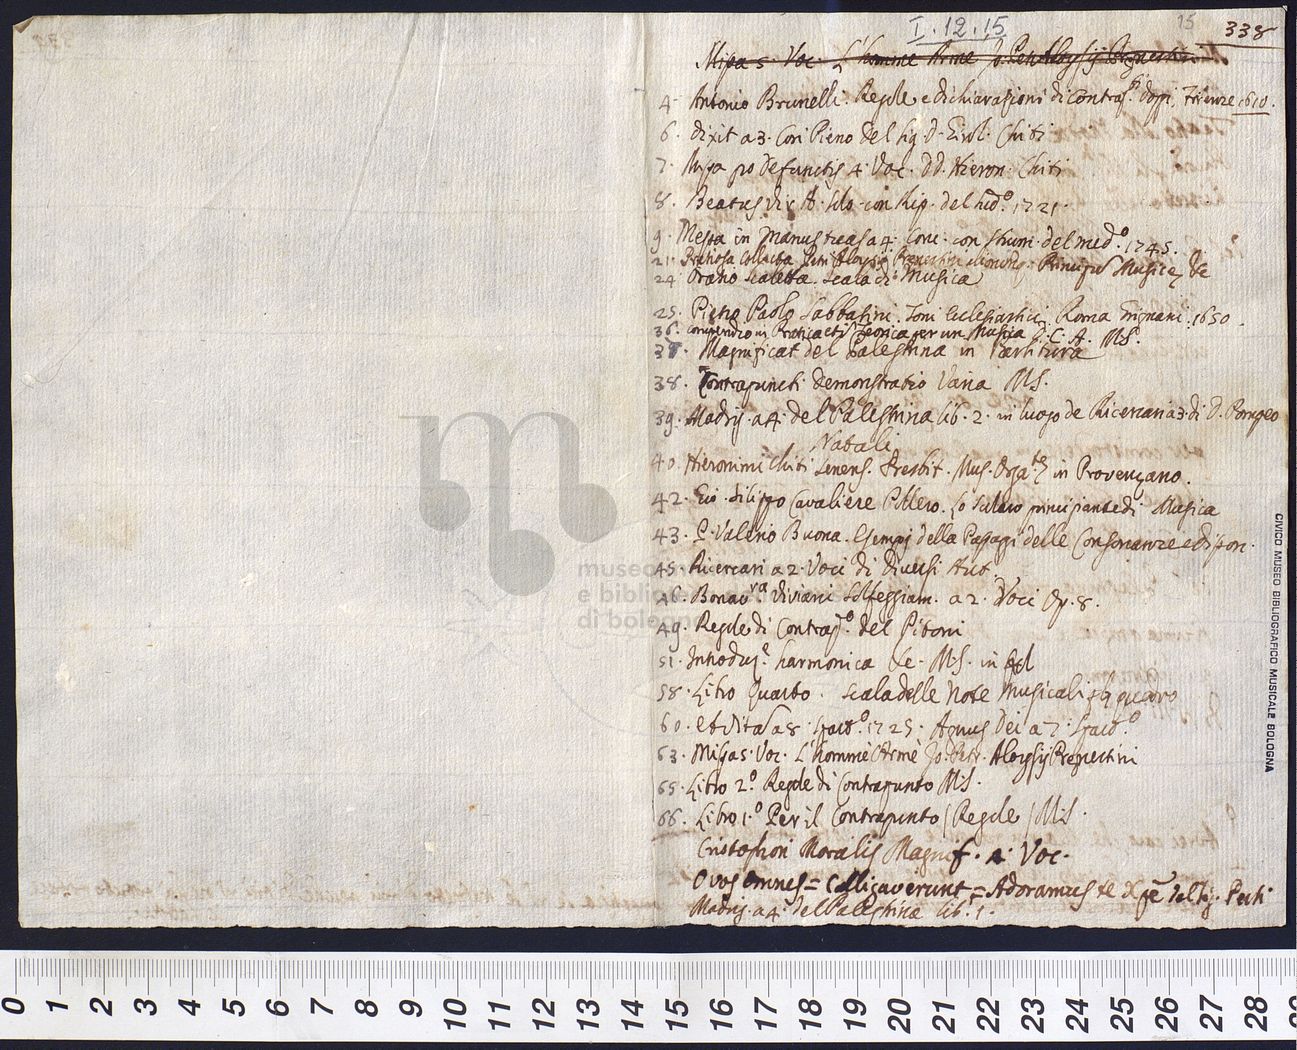 I.12.15
15
338
Missa 5. Voc. L'homme Arme Jo. Petr. Aloysij Prenestini
4. Antonio Brunelli. Regole e dichiarazioni di Contrap. dopp. Firenze 1610.
6. Dixit a 3. Cori Pieno del Sig. D. Girol. Chiti
7. Missa pro Defunctis 4. Voc. DD. Hieron. Chiti
8. Beatus Vir A. Solo con Rip. del med.º 1721.
9. Messa in a 4. Conc. con Strum. del med.º 1745.
21. Collecta Petri Aloysij Musicę &c
24. Oratio Scaletta. Scala di Musica
25. Pietro Paolo Sabbatini. Toni Ecclesiastici. Roma Grignani. 1650.
36. Compendio in Pratica et in Teorica per un Musica D. C. A. MS.
37. Magnificat del Palestrina in Partitura
38. Contrapuncti demonstratio Varia MS.
39. Madrig. a 4. del Palestrina lib. 2. in luogo de Ricercari a 3. di D. Pompeo
Natali
40. Hieronimi Chiti Senens. Presbit. Mus. in Provenzano.
42. Gio. Filippo Cavaliere. Lo Scolaro principiante di Musica
43. P. Valerio Buona. Esempj della Passaggi delle Consonanze e Disson.
45. Ricercari a 2. Voci di Diversi Aut.
46. Bonav.ra Viviani Solfeggiam. a 2. Voci Op. 8.
49. Regole di Contrap.º del Pitoni
51. Introduz.e harmonica &c. MS. in fol
58. Libro Quarto. Scala delle Note Musicali
60. et Vitā a 8. 1725. Agnus Dei a 7.
63. Missa 5. Voc. L'homme Armè Jo. Petr. Aloysij Prenestini
65. Libro 2.º Regole di Contrapunto MS.
66. Libro 1.º Per il Contrapunto / Regole / MS.
Cristophori Moralis Magnif. 4. Voc.
O vos omnes = Colligaverunt = Adoramus te Xpē del Sig. Perti
Madrig. a 4. del Palestrina lib. 1.
museo
e biblio
di bologna
CIVICO MUSEO BIBLIOGRAFICO MUSICALE BOLOGNA
0 1 2 3 4 5 6 7 8 9 10 11 12 13 14 15 16 17 18 19 20 21 22 23 24 25 26 27 28